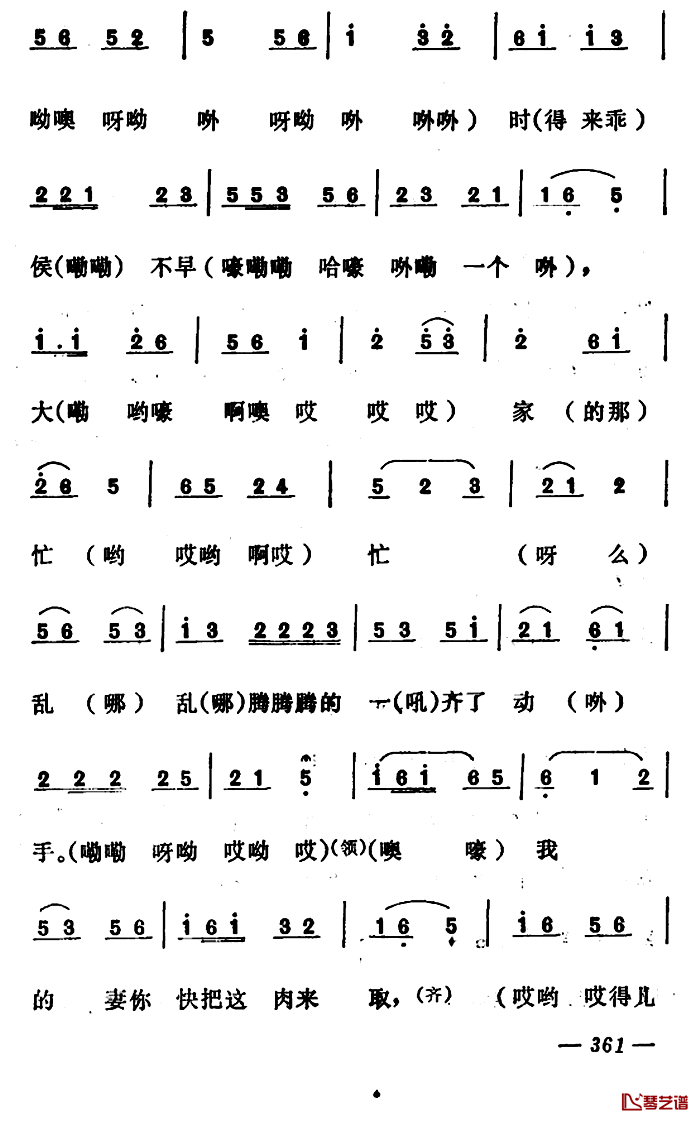 5652 | 5 56 | i 32 | 6i i3 |
呦噢 呀呦 唦 呀呦 唦 唦唦) 时(得 来乖)
221 23 | 553 56 | 23 21 | 16 5 |
侯(嘞嘞) 不早(嚎嘞嘞 哈嚎 唦嘞 一个 唦),
i.i 26 | 56 i | 2 53 | 2 6i |
大(嘞 哟嚎 啊噢 哎 哎 哎) 家 (的那)
26 5 | 65 24 | 5 2 3 | 21 2
忙 (哟 哎哟 啊哎) 忙 (呀 么)
56 53 | i3 2223 | 53 5i | 21 61 |
乱 (哪) 乱(哪)腾腾腾的 一(吼)齐了 动 (唦)
2 22 25 | 21 5 | i6i 65 | 6 1 2 |
手。(嘞嘞 呀呦 哎呦 哎)(领)(噢 嚎) 我
53 56 | i6i 32 | 16 5 | i6 56 |
的 妻你 快把这 肉来 取, (齐) (哎哟 哎得儿
— 361 —
琴艺谱